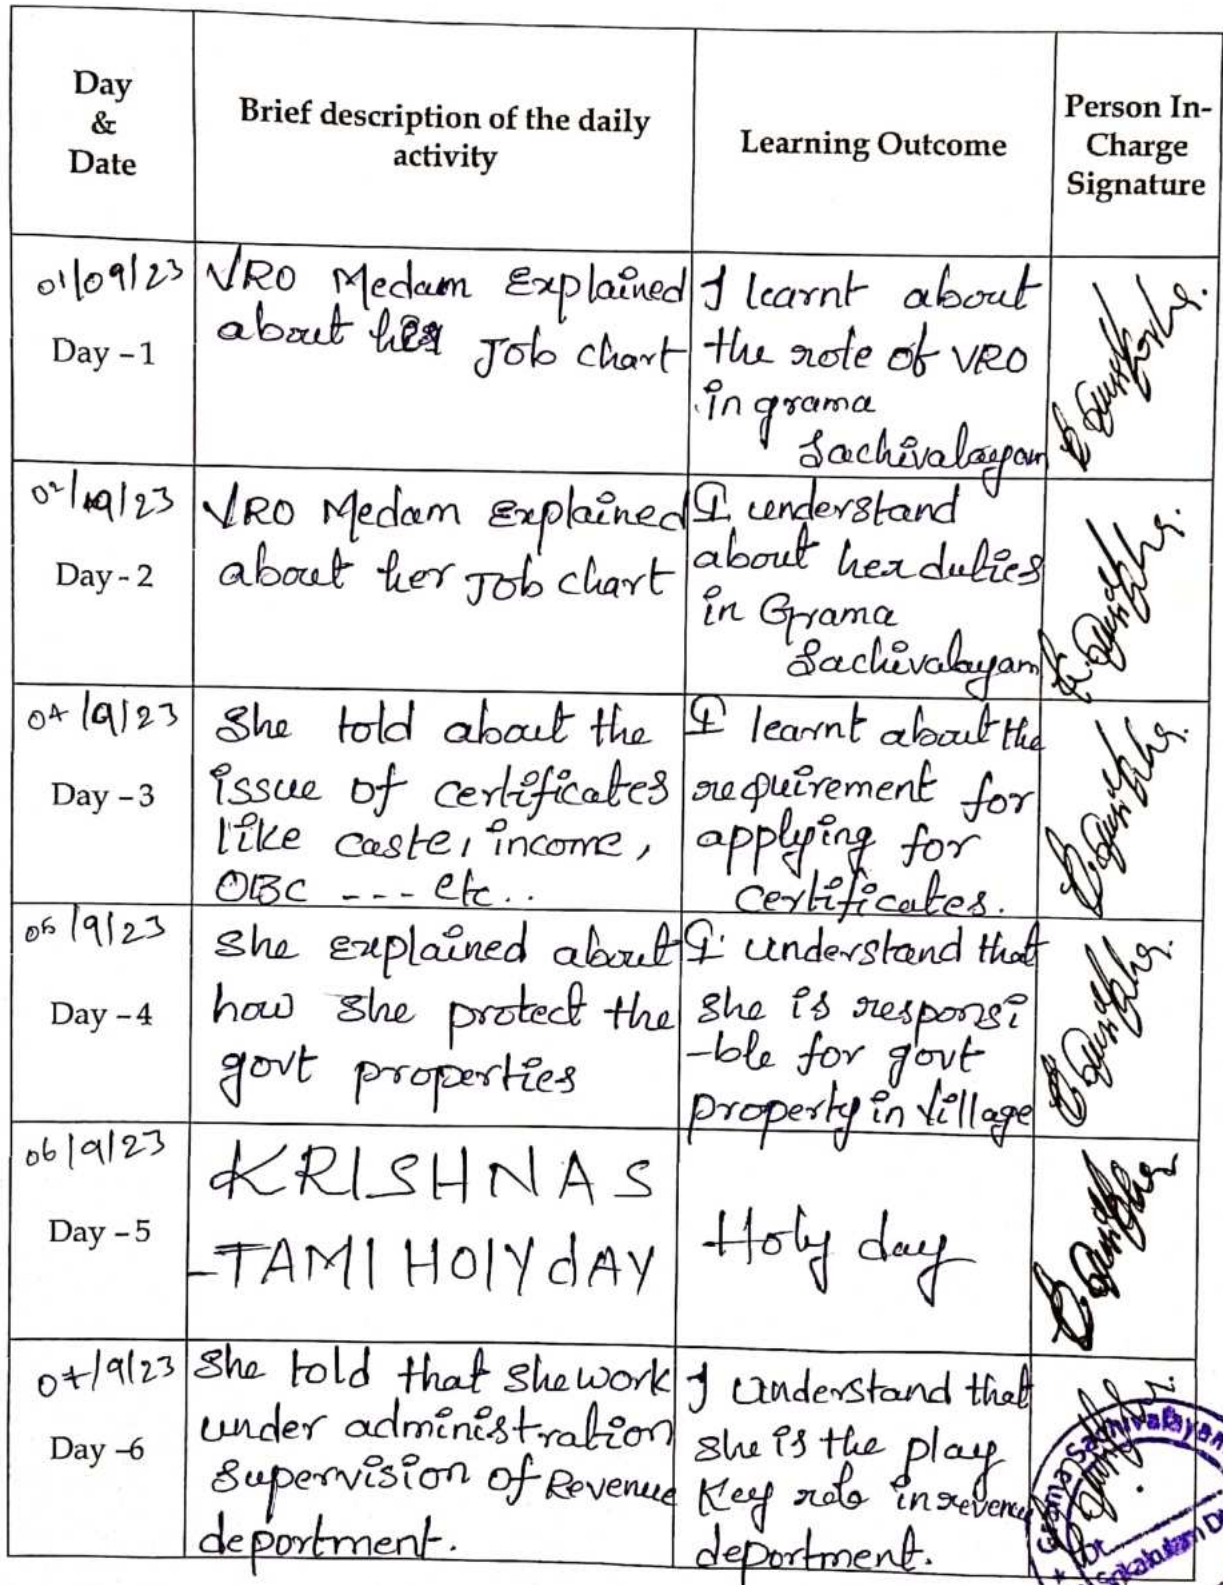 Day
&
Date
Brief description of the daily
activity
Learning Outcome
Person In-
Charge
Signature
01/09/23
Day - 1
VRO Medam Explained
about her Job chart
I learnt about
the role of VRO
in grama
Sachivalayam
02/09/23
Day - 2
VRO Medam Explained
about her Job chart
I understand
about her duties
in Grama
Sachivalayam
04/9/23
Day - 3
She told about the
issue of certificates
like caste, income,
OBC --- etc..
I learnt about the
requirement for
applying for
certificates.
05/9/23
Day - 4
She explained about
how she protect the
govt properties
I understand that
she is responsi
-ble for govt
property in village
06/9/23
Day - 5
KRISHNAS
-TAMI HOlYdAY
Holy day
07/9/23
Day -6
She told that she work
under administration
supervision of Revenue
deportment.
I understand that
she is the play
Key role in revenue
deportment.
Grama Sachivalayam
Srikakulam